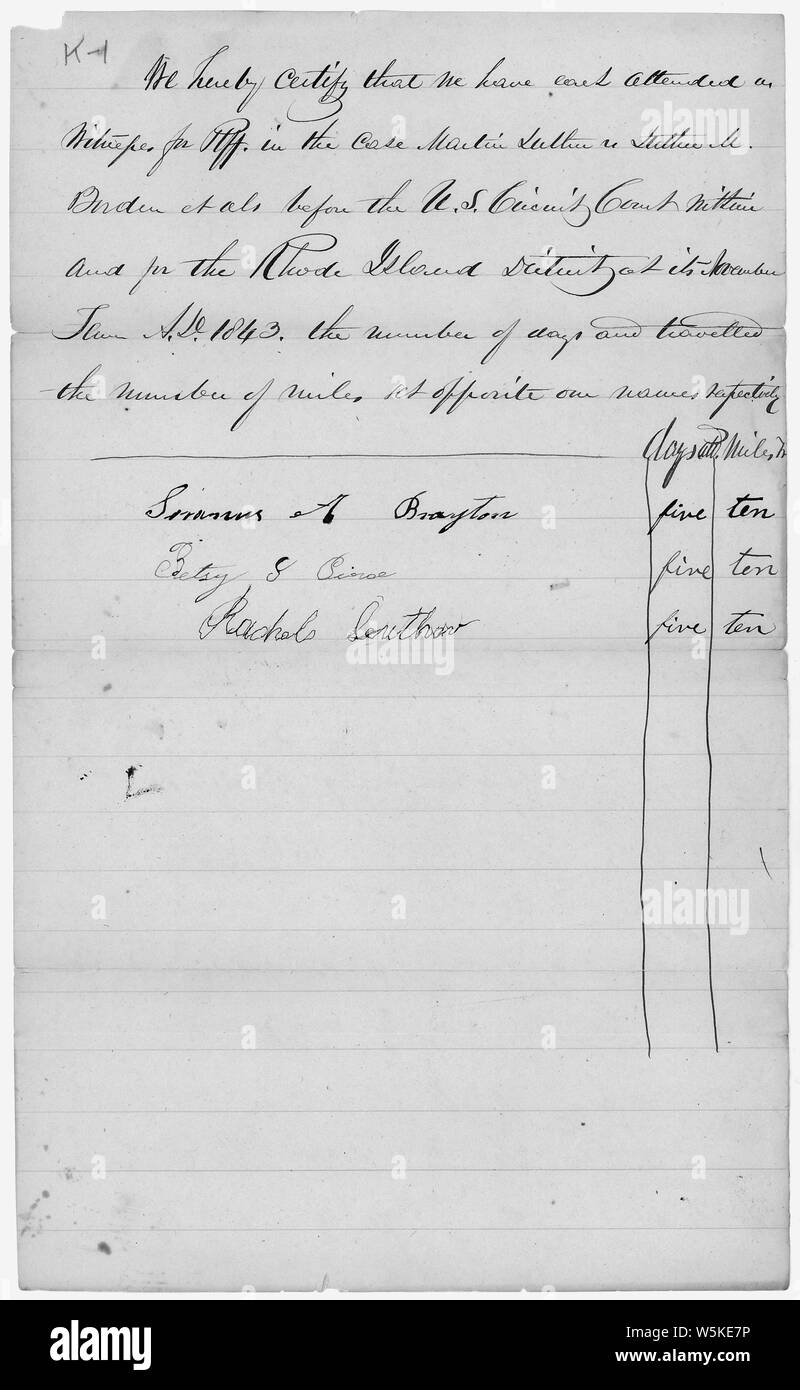 K-1
We hereby certify that we have each attended as
Witnesses for Plff. in the case Martin Luther vs Luther M.
Borden et als before the U.S. Circuit Court within
and for the Rhode Island District at its November
Term A.D. 1843. the number of days and travelled
the number of miles set opposite our names respectively
days att. Miles Tr
A Brayton five ten
Betsy S five ten
Rachel S five ten
alamy
alamy
alamy
a a a
alamy
a a a
a a a
alamy
W5KE7P
www.alamy.com